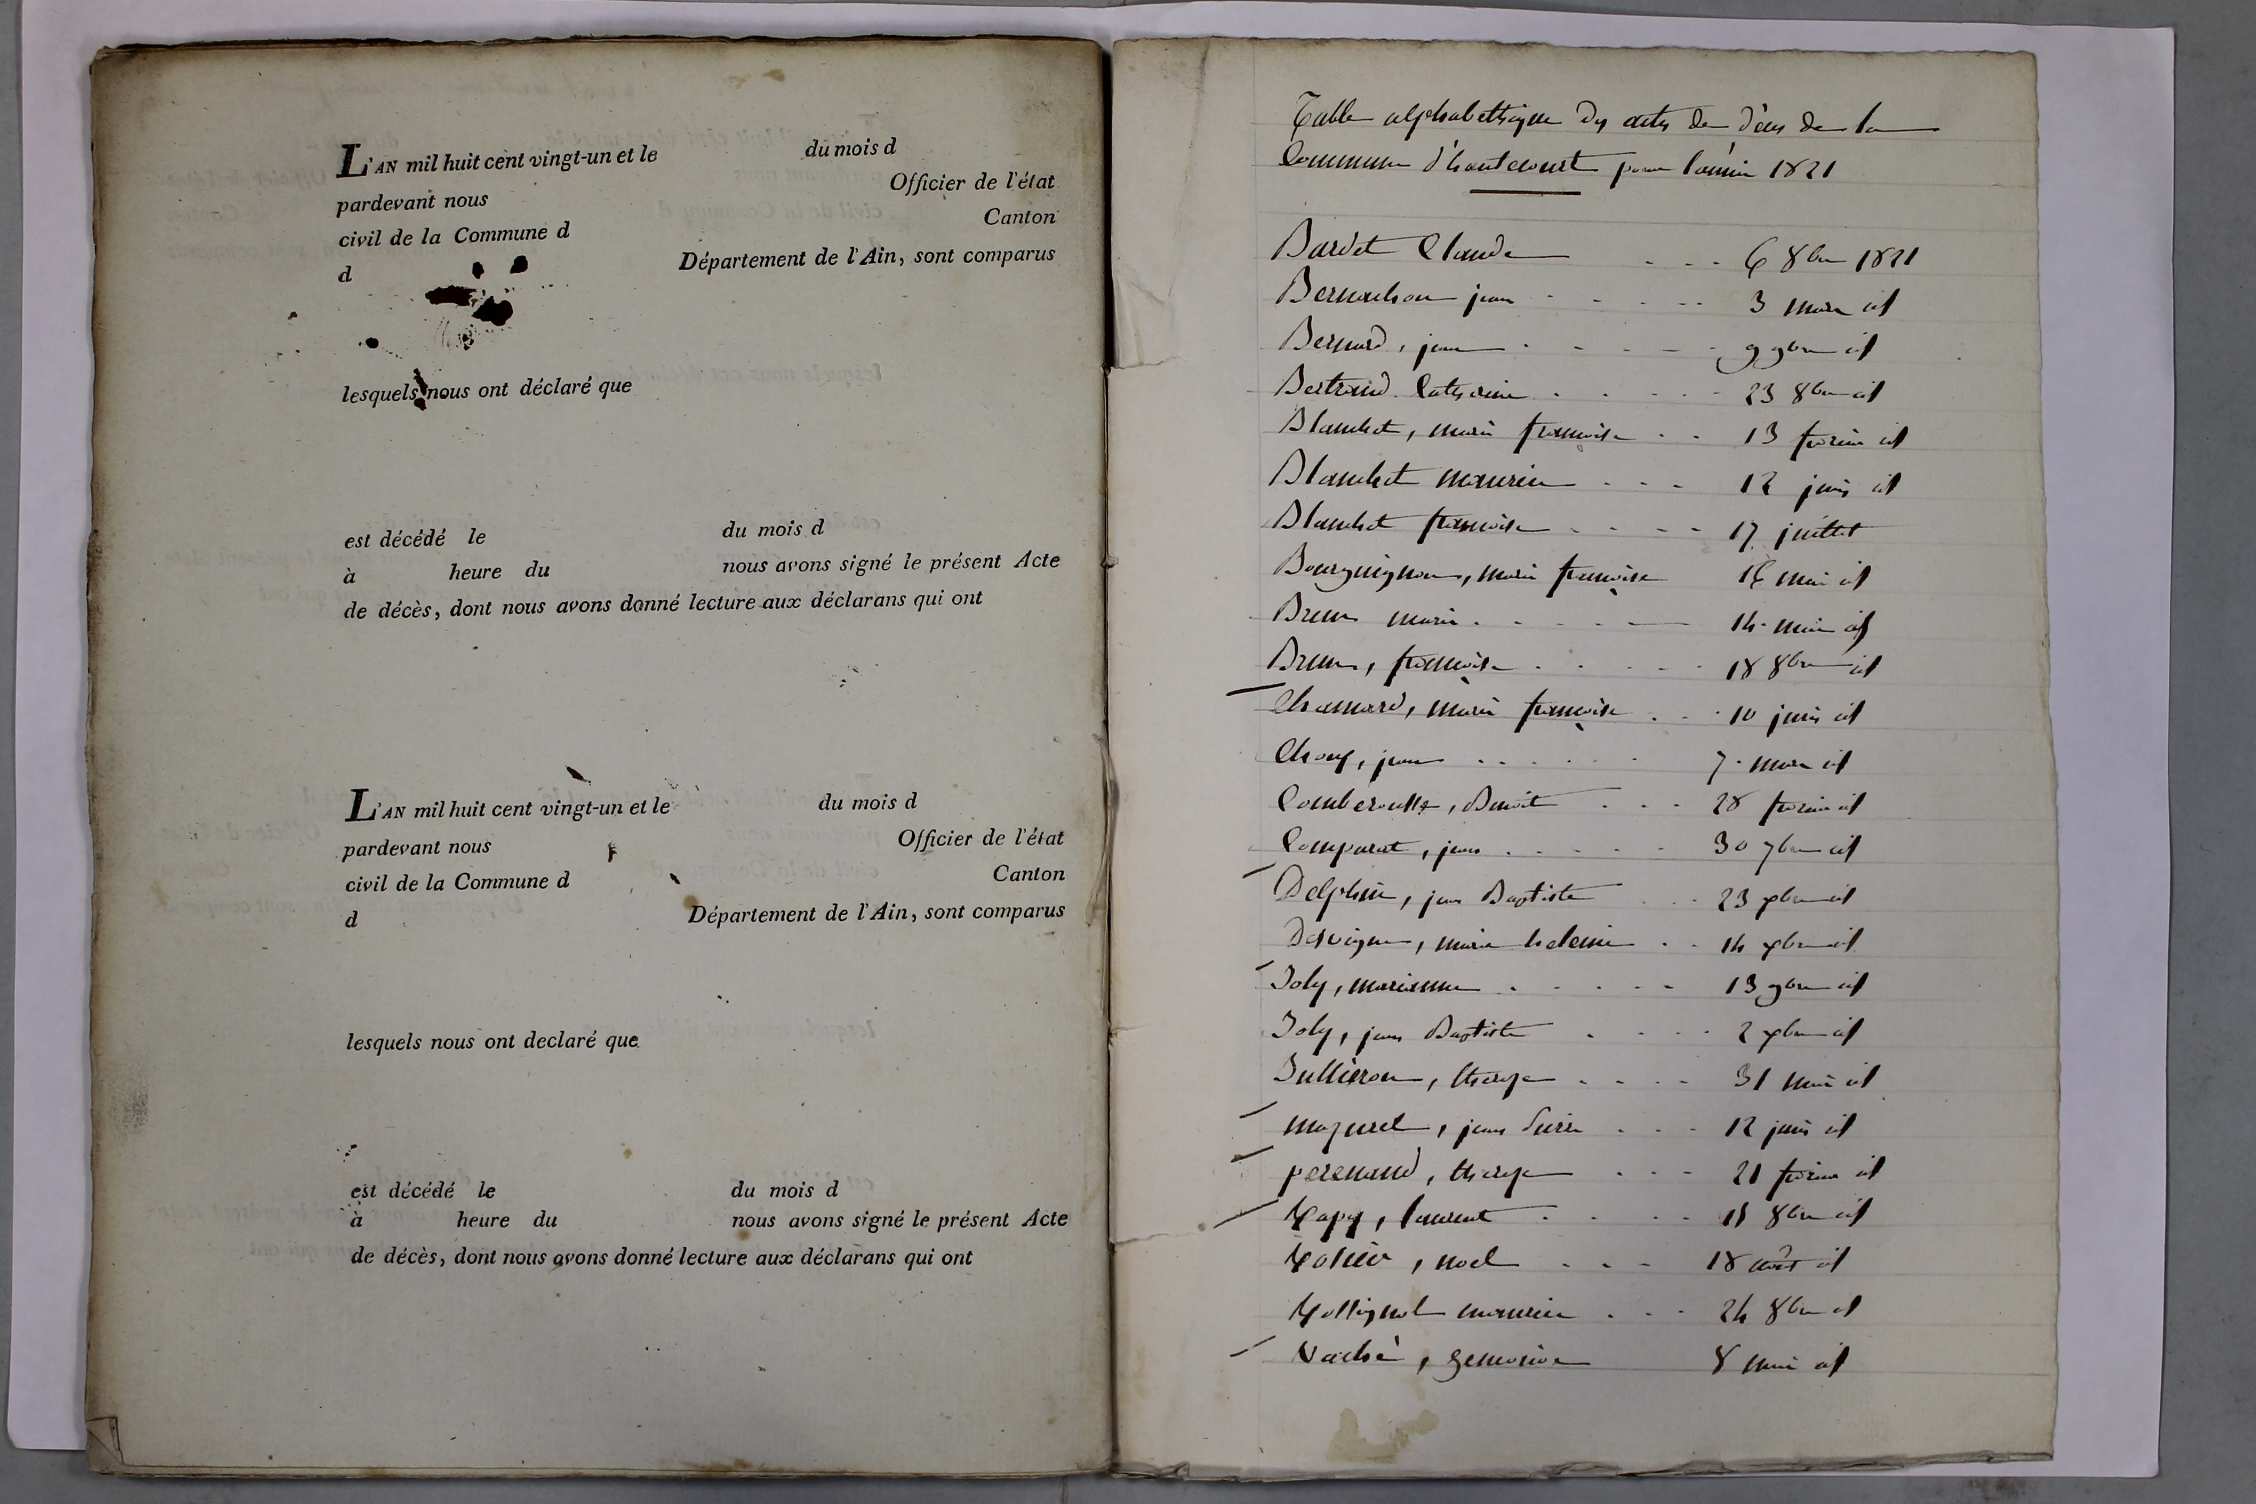 L'AN mil huit cent vingt-un et le du mois d
pardevant nous Officier de l'état
civil de la Commune d Canton
d Département de l'Ain, sont comparus
lesquels nous ont déclaré que
est décédé le du mois d
à heure du nous avons signé le présent Acte
de décès, dont nous avons donné lecture aux déclarans qui ont
L'AN mil huit cent vingt-un et le du mois d
pardevant nous Officier de l'état
civil de la Commune d Canton
d Département de l'Ain, sont comparus
lesquels nous ont declaré que
est décédé le du mois d
à heure du nous avons signé le présent Acte
de décès, dont nous avons donné lecture aux déclarans qui ont
Table alphabethique des actes de décès de la
Commune d'hautecourt pour l'année 1821
Bardet Claude - - - 6 8bre 1821
jean - - - - 3 mars id
Bernard, jean - - - - 9 9bre id
Bertrand Catherine - - - - 23 8bre id
Blanchet, marie françoise - - 13 fevrier id
Blanchet maurice - - - 12 juin id
Blanchet françoise - - - - 17 juillet
Bourguignon, marie françoise 16 mai id
Brun marie - - - - 14 mai id
Brun, françoise - - - - 18 8bre id
Chamard, marie françoise - - 10 juin id
jean - - - - - 7 mars id
Comberousse, Benoit - - - 28 fevrier id
Comparat, jean - - - - - 30 7bre id
Delphin, jean Baptiste - - 23 xbre id
Desvigne, marie helene - - 14 xbre id
Joly, marianne - - - - - 13 9bre id
Joly, jean Baptiste - - - - 2 xbre id
Jullieron, therese - - - - 31 mai id
mazuret, jean Pierre - - - 12 juin id
perenand, therese - - - 21 fevrier id
Rapy, laurent - - - - 15 8bre id
noel - - - 18 août id
maurice - - - 24 8bre id
Vaché, genevieve 8 mai id